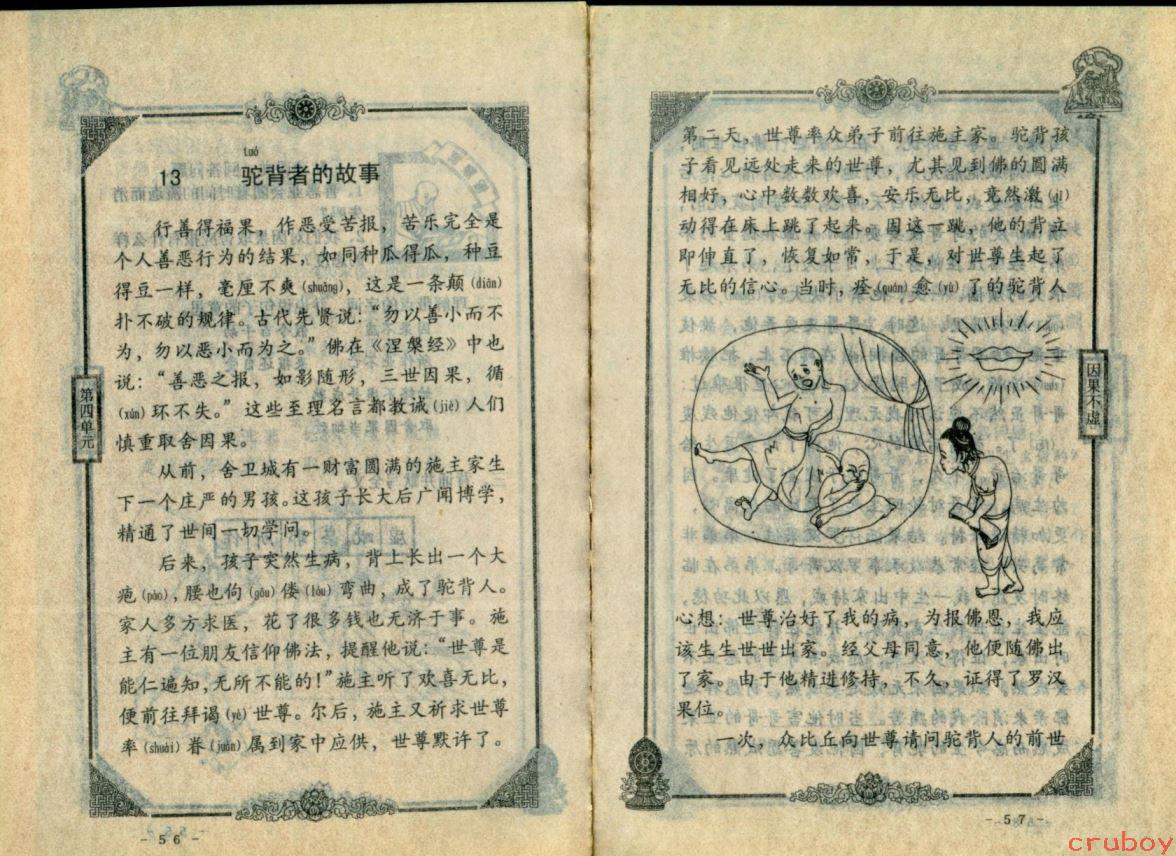 tuó
13 驼背者的故事
行善得福果，作恶受苦报，苦乐完全是
个人善恶行为的结果，如同种瓜得瓜，种豆
得豆一样，毫厘不爽(shuǎng)，这是一条颠(diān)
扑不破的规律。古代先贤说：“勿以善小而不
为，勿以恶小而为之。”佛在《涅槃经》中也
说：“善恶之报，如影随形，三世因果，循
(xún)环不失。”这些至理名言都教诫(jiè)人们
慎重取舍因果。
从前，舍卫城有一财富圆满的施主家生
下一个庄严的男孩。这孩子长大后广闻博学，
精通了世间一切学问。
后来，孩子突然生病，背上长出一个大
疱(pào)，腰也佝(gōu)偻(lóu)弯曲，成了驼背人。
家人多方求医，花了很多钱也无济于事。施
主有一位朋友信仰佛法，提醒他说：“世尊是
能仁遍知，无所不能的！”施主听了欢喜无比，
便前往拜谒(yè)世尊。尔后，施主又祈求世尊
率(shuài)眷(juàn)属到家中应供，世尊默许了。
第四单元
- 56 -
第二天，世尊率众弟子前往施主家。驼背孩
子看见远处走来的世尊，尤其见到佛的圆满
相好，心中数数欢喜，安乐无比，竟然激(jī)
动得在床上跳了起来。因这一跳，他的背立
即伸直了，恢复如常，于是，对世尊生起了
无比的信心。当时，痊(quán)愈(yù)了的驼背人
心想：世尊治好了我的病，为报佛恩，我应
该生生世世出家。经父母同意，他便随佛出
了家。由于他精进修持，不久，证得了罗汉
果位。
一次，众比丘向世尊请问驼背人的前世
因果不虚
- 57 -
cruboy